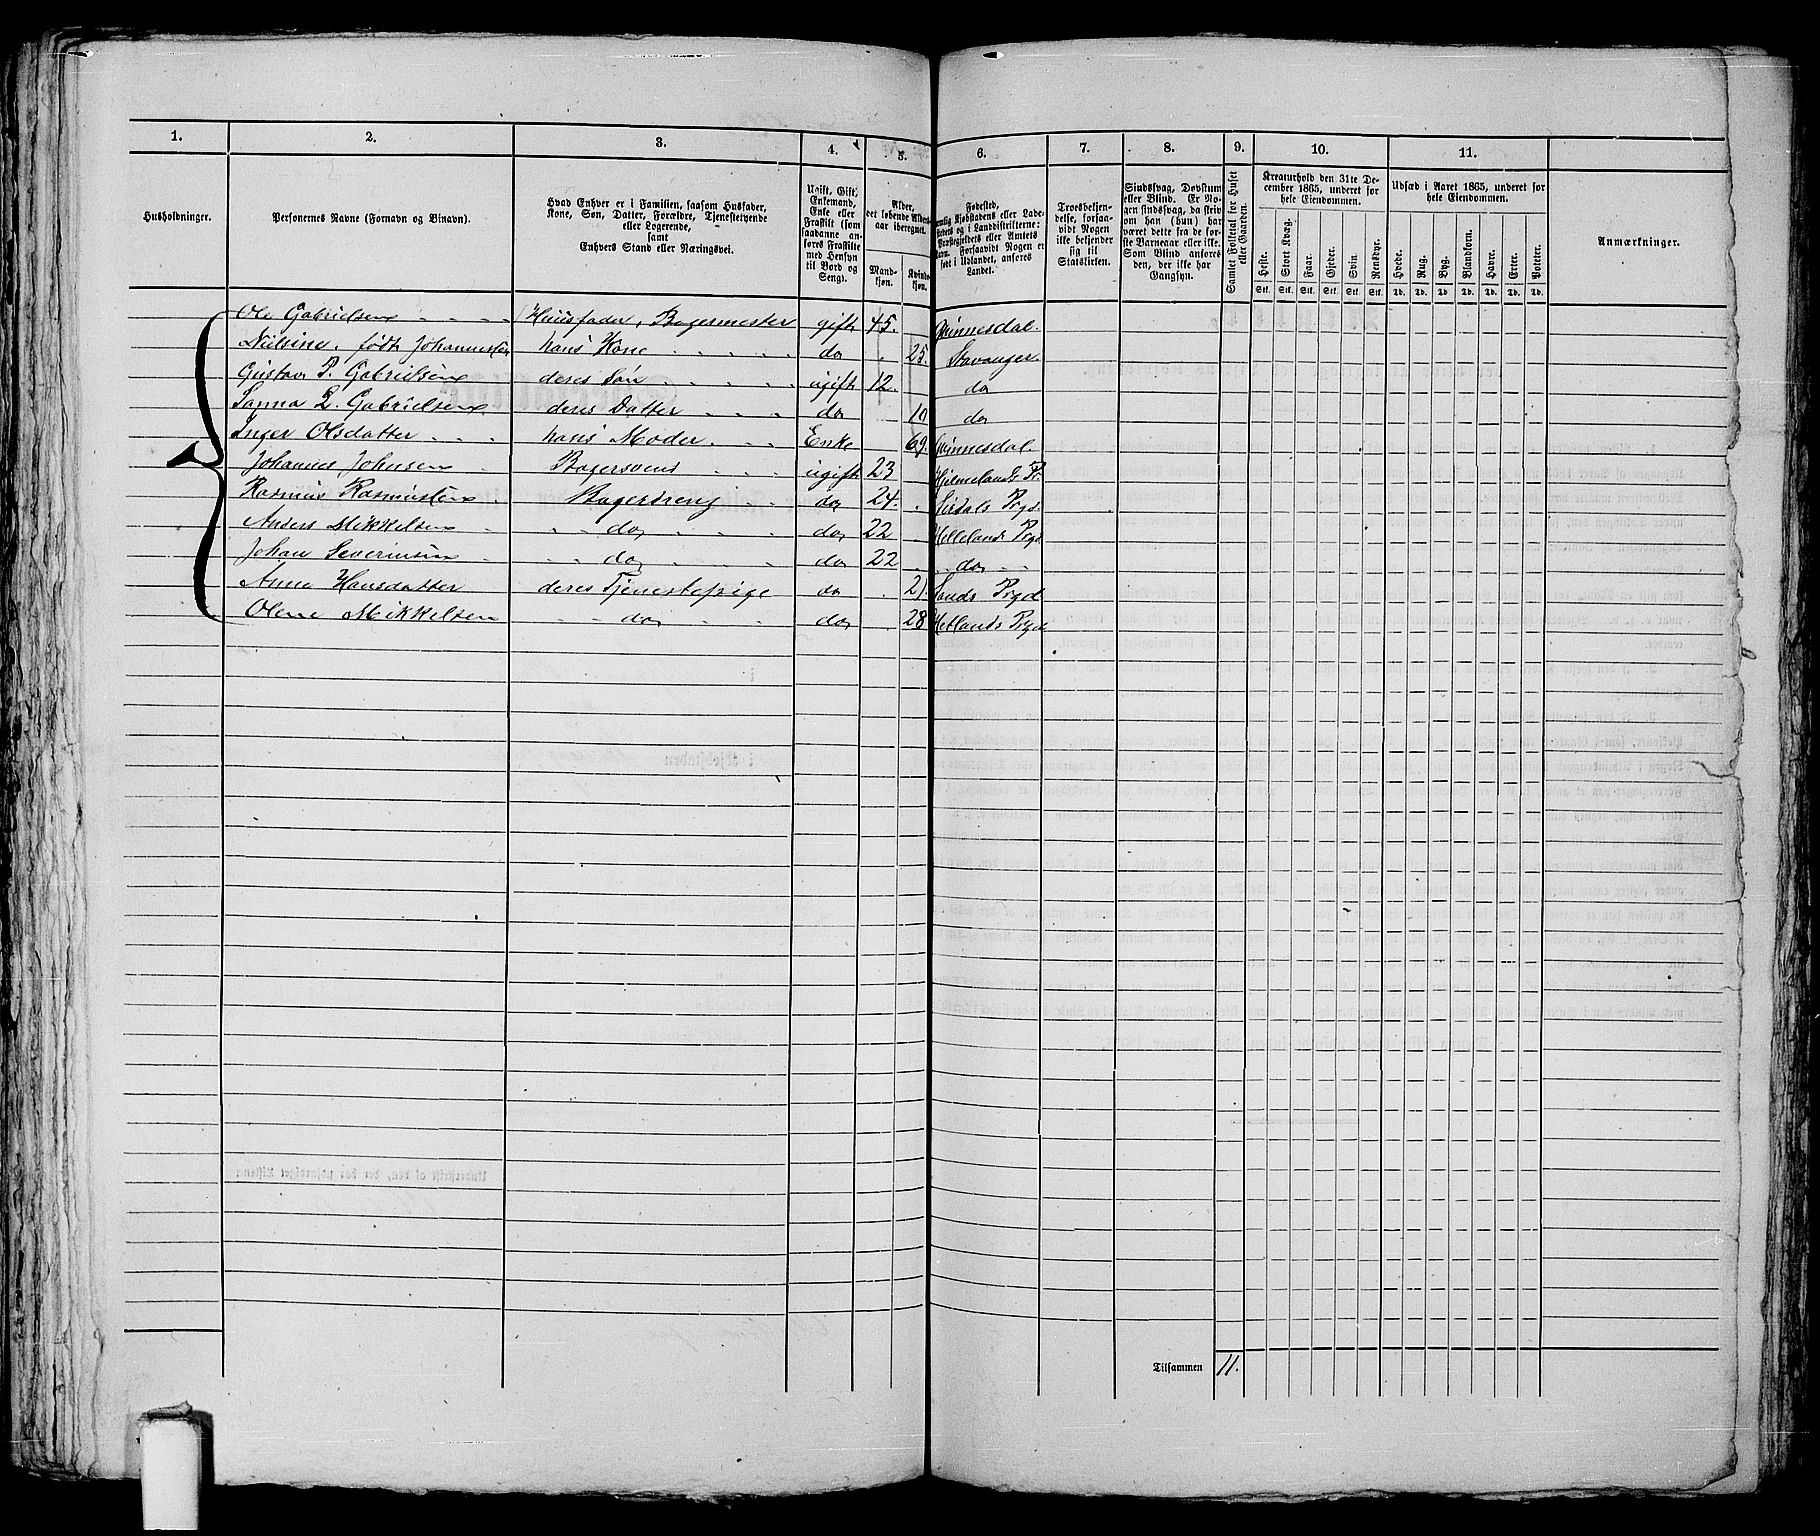 1. 2. 3. 4. 5. 6. 7. 8. 9. 10. 11.
Husholdninger.
Personernes Navne (Fornavn og Binavn).
Hvad Enhver er i Familien, saasom Husfader,
Kone, Søn, Datter, Forældre, Tjenestetyende
eller Logerende,
samt
Enhvers Stand eller Næringsvei.
Ugift, Gift,
Enkemand,
Enke eller
Fraskilt (som
saadanne an-
føres Fraskilte
med Hensyn
til Bord og
Seng).
Alder,
det løbende Alders-
aar iberegnet.
Mand-
kjøn.
Kvinde-
kjøn.
Fødested,
nemlig Kjøbstadens eller Lade-
stedets og i Landdistrikterne:
Præstegjeldets eller Amtets
Navn. Forsaavidt Nogen er
født i Udlandet, anføres
Landet.
Troesbekjen-
delse, forsaa-
vidt Nogen
ikke bekjender
sig til
Statskirken.
Sindssvag, Døvstum
eller Blind. Er No-
gen sindssvag, da skriv
om han (hun) har
været dette fra de før-
ste Barneaar eller ikke.
Som Blind anføres
den, der ikke har
Gangsyn.
Samlet Folketal for Huset
eller Gaarden.
Kreaturhold den 31te De-
cember 1865, underet for
hele Eiendommen.
Heste. Stort Kvæg. Faar. Gjeder. Svin. Rensdyr.
Stk. Stk. Stk. Stk. Stk. Stk.
Udsæd i Aaret 1865, underet for
hele Eiendommen.
Hvede. Rug. Byg. Blandkorn. Havre. Erter. Poteter.
Td. Td. Td. Td. Td. Td. Td.
Anmærkninger.
Ole Gabrielsen Huusfader, Bagermester gift 45. Qvinnesdal.
Nielsine født Johannessen hans Kone do 25. Stavanger.
Gustav P. Gabrielsen deres Søn ugift 12. do
Sanna L. Gabrielsen deres Datter do 10 do
Inger Olsdatter hans Moder. Enke 69. Qvinnesdal.
Johannes Johnsen Bagersvend ugift 23 Hjelmelands Pr.
Rasmus Rasmussen Bagerdreng do 24. Sirdals Prgd.
Anders Mikkelsen do 22 Hellelands Prgd
Johan Severinsen do do 22 do
Anne Hansdatter deres Tjenestepige do 21. Sands Prgd
Olene Mikkelsen do do 28 Hetlands Prgd
Tilsammen 11.